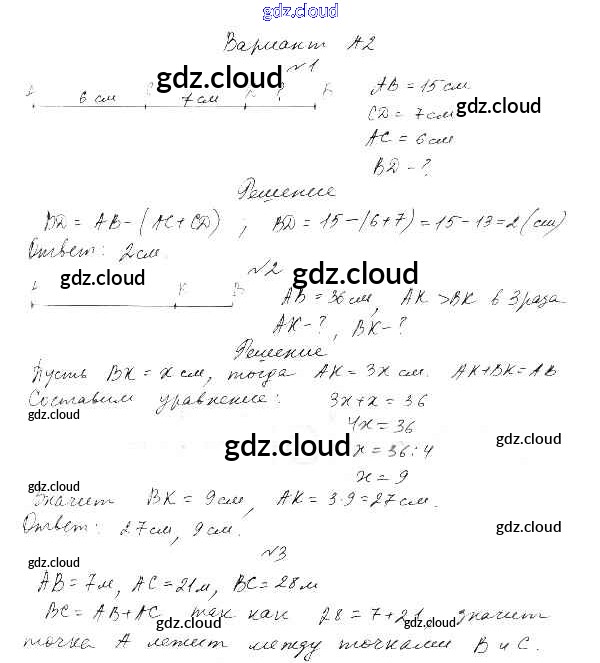 gdz.cloud
Вариант А2
№1
gdz.cloud
A 6 см C 7 см D ? B
AB = 15 см
CD = 7 см
gdz.cloud
AC = 6 см
BD - ?
Решение
BD = AB - (AC + CD) ; BD = 15 - (6 + 7) = 15 - 13 = 2 (см)
Ответ: 2 см.
gdz.cloud
№2
gdz.cloud
A K B
AB = 36 см, AK > BK в 3 раза
AK - ? , BK - ?
Решение
Пусть BK = x см, тогда AK = 3x см. AK + BK = AB
Составим уравнение: 3x + x = 36
gdz.cloud
4x = 36
gdz.cloud
gdz.cloud
x = 36 : 4
x = 9
gdz.cloud
Значит BK = 9 см, AK = 3·9 = 27 см.
Ответ: 27 см, 9 см.
gdz.cloud
№3
gdz.cloud
AB = 7 м, AC = 21 м, BC = 28 м
BC = AB + AC так как 28 = 7 + 21, значит
gdz.cloud
gdz.cloud
точка A лежит между точками B и C.